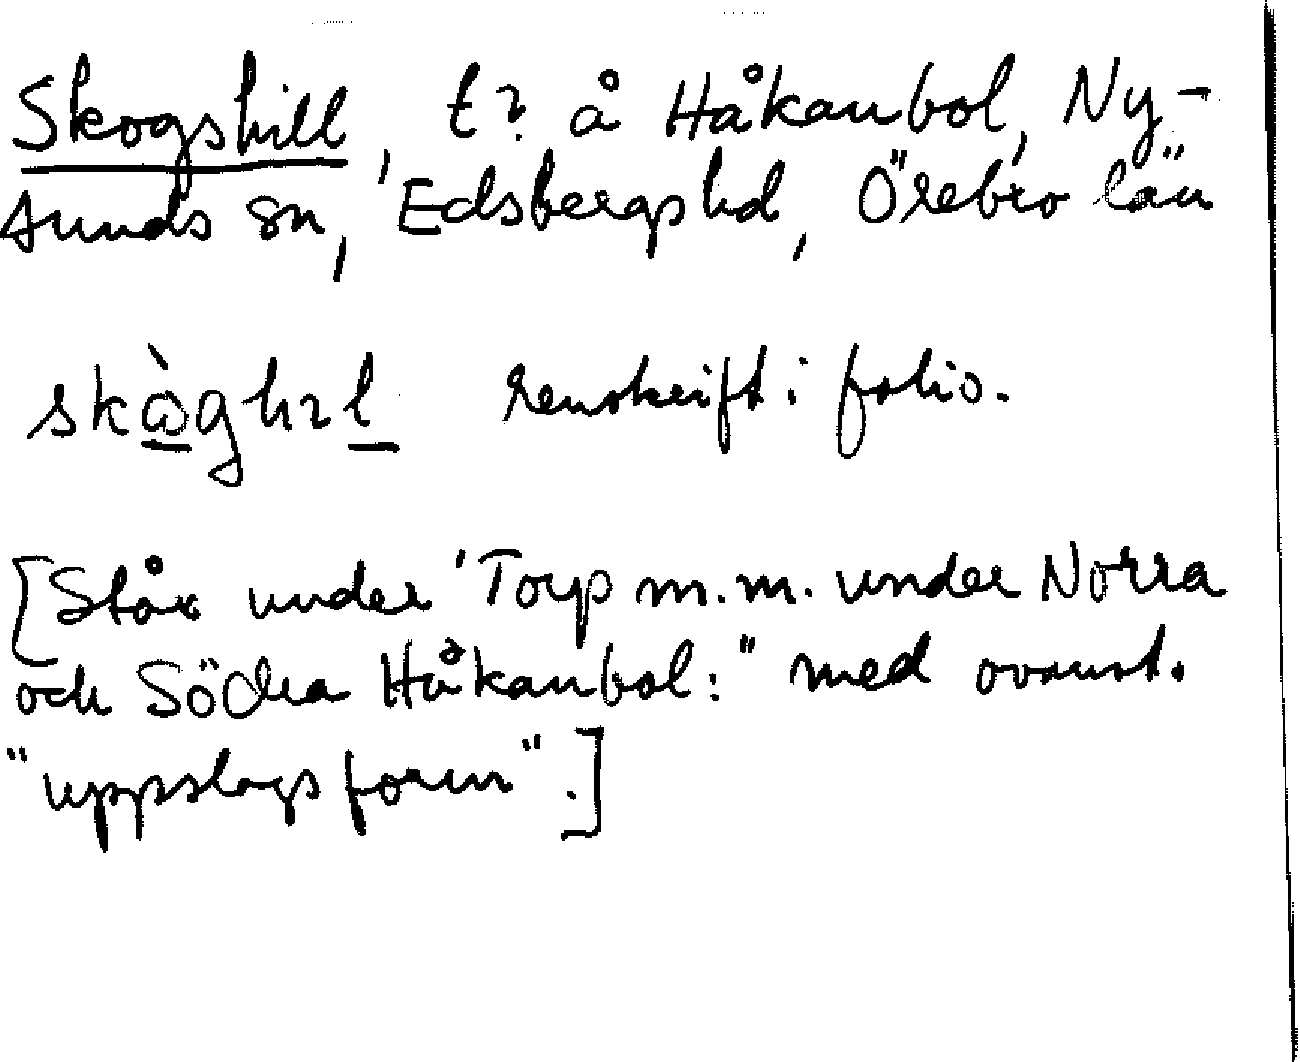 Skogshill, t? å Håkanbol, Ny-
sunds sn, Edsbergs hd, Örebro län
skòghıl renskrift i folio.
[Står under "Torp m.m. under Norra
och Södra Håkanbol:" med ovanst.
"uppslagsform".]